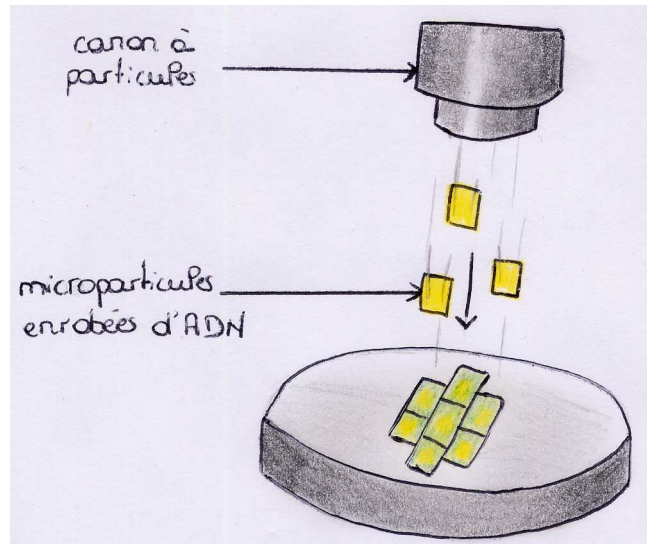 canon à
particules
microparticules
enrobées d'ADN